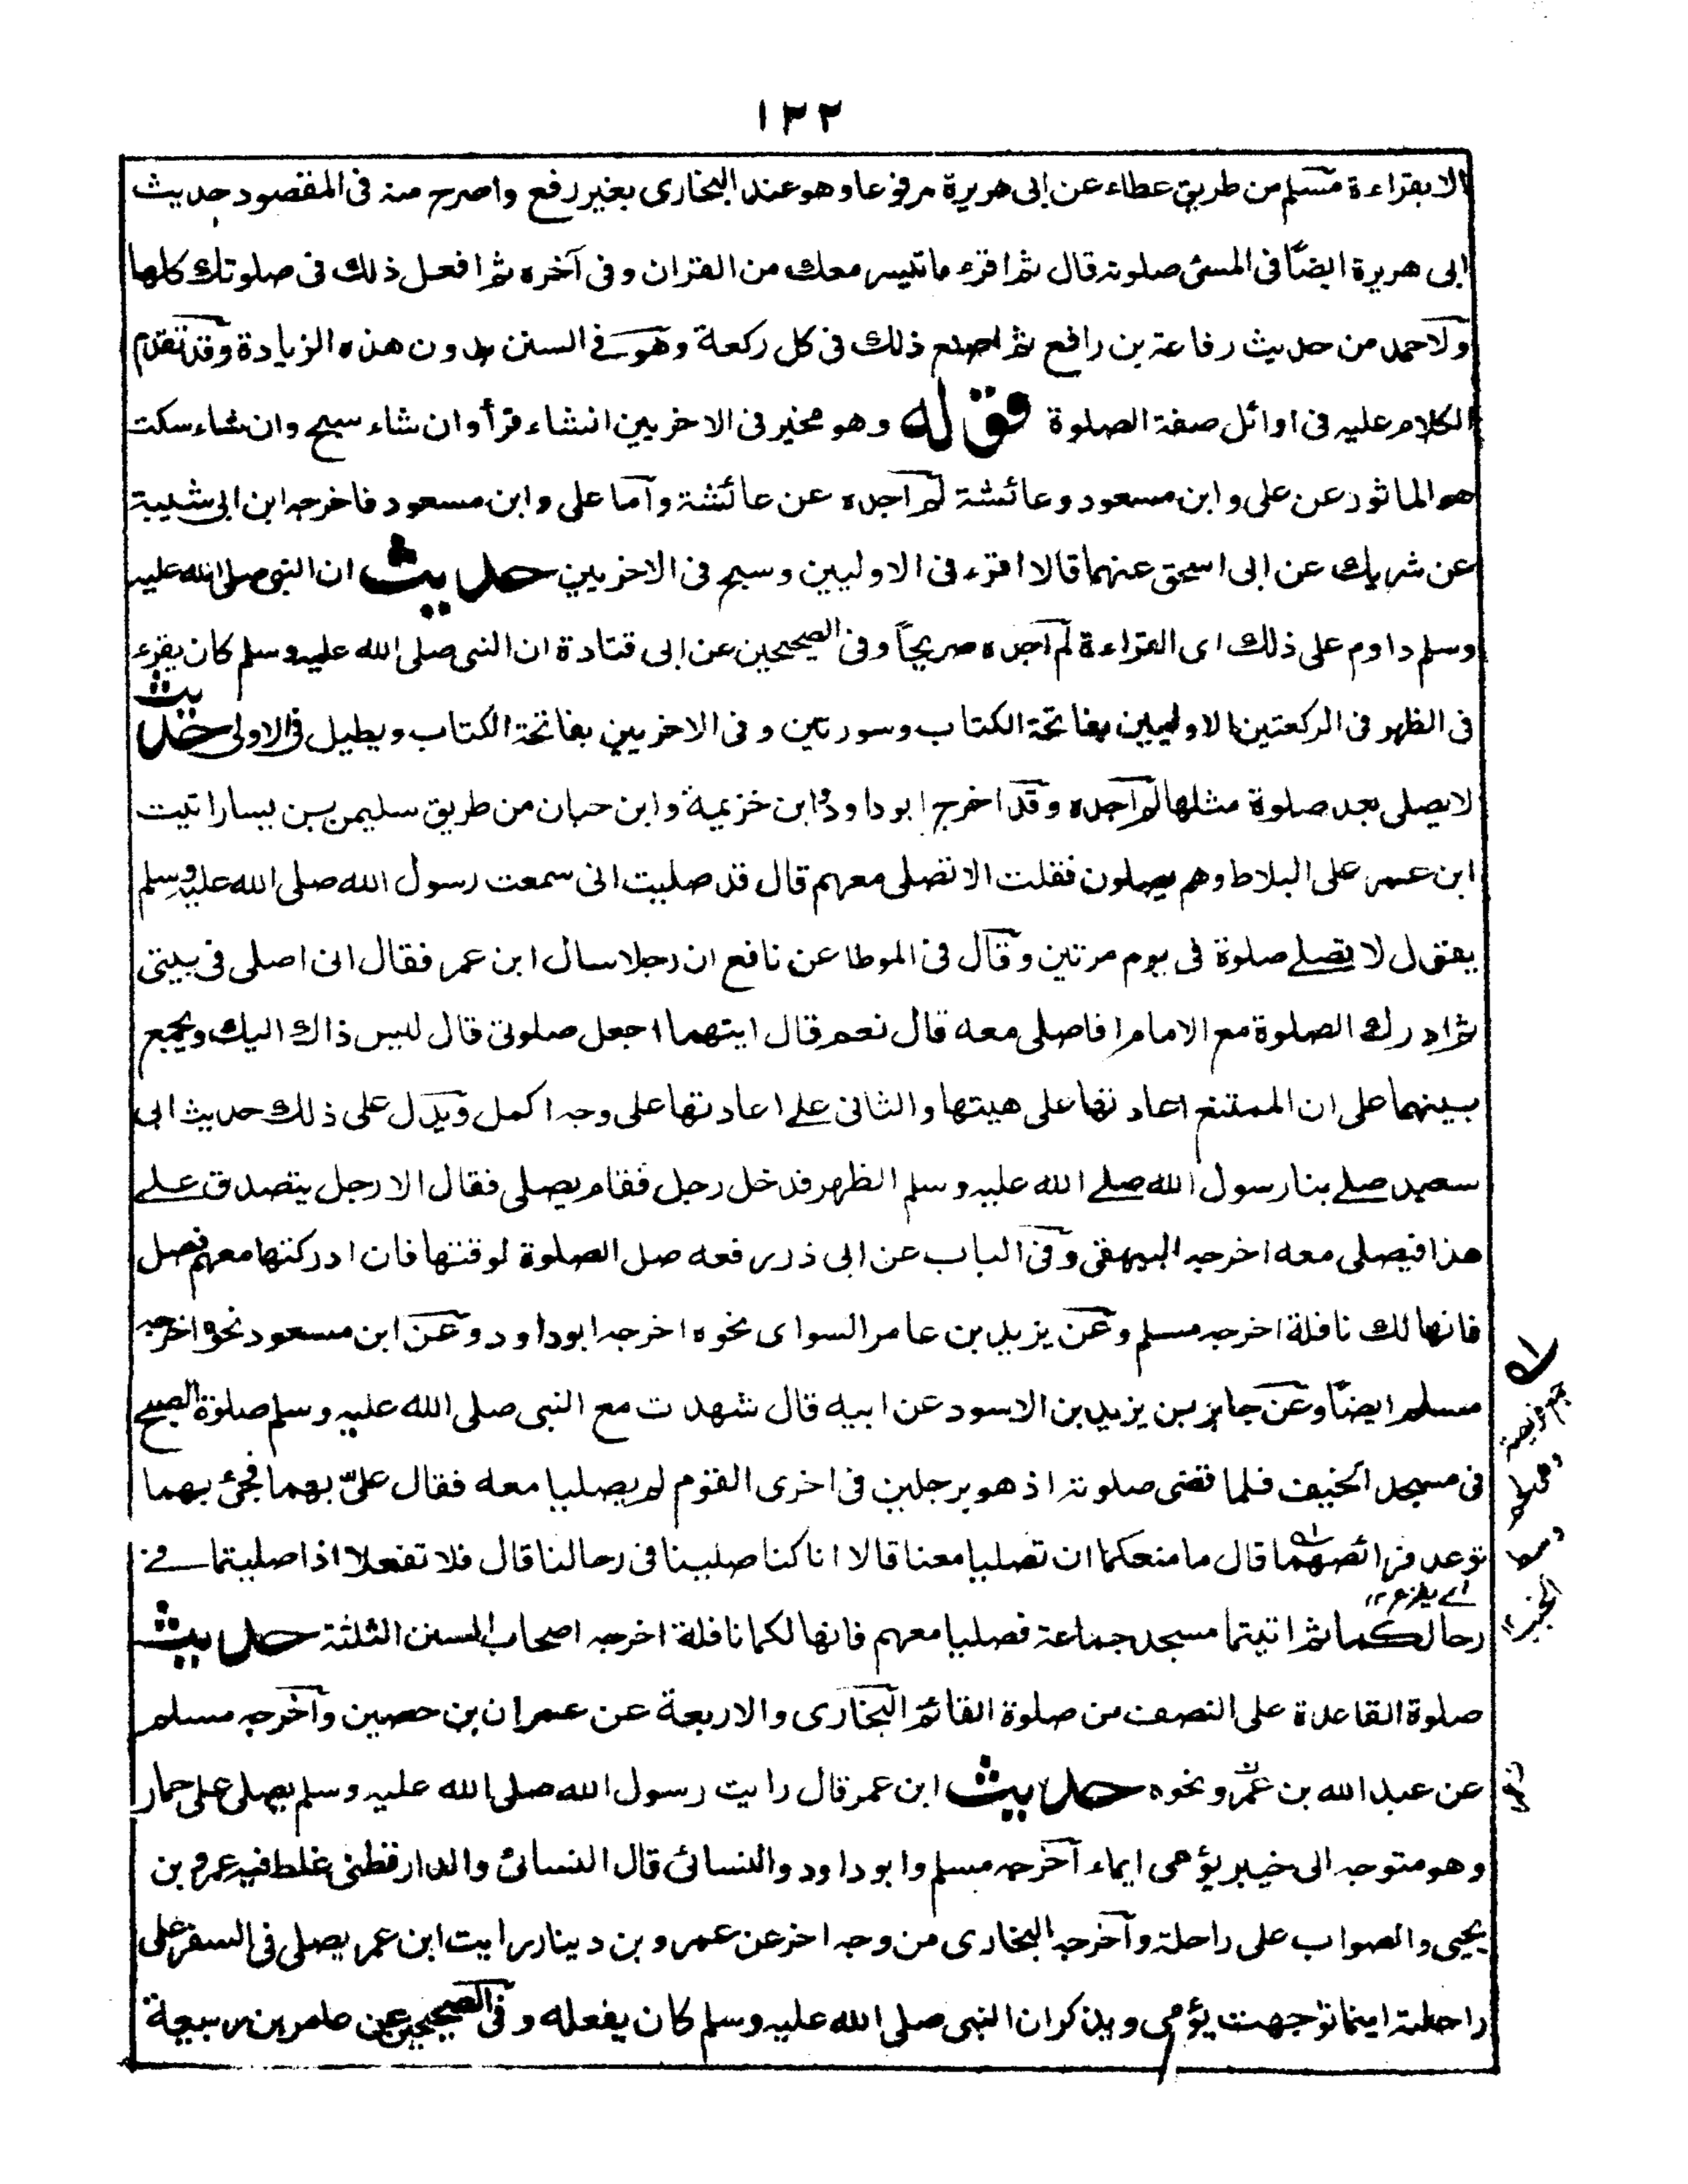 ١٢٢
الا بقراءة مسلم من طريق عطاء عن ابى هريرة مرفوعا وهو عند البخارى بغير رفع واصرح منه فى المقصود حديث
ابى هريرة ايضاً فى المسئ صلوته قال ثم اقرء ما تيسر معك من القران وفى آخره ثم افعل ذلك فى صلوتك كلها
ولاحمد من حديث رفاعة بن رافع ثم اصنع ذلك فى كل ركعة وهو فے السنن بدون هذه الزيادة وقد تقدم
الكلام عليه فى اوائل صفة الصلوة قوله وهو مخير فى الاخريين انشاء قرأ وان شاء سبح وان شاء سكت
هو الماثور عن على وابن مسعود وعائشة لم اجده عن عائشة واما على وابن مسعود فاخرجه ابن ابى شيبة
عن شريك عن ابى اسحق عنهما قالا اقرء فى الاوليين وسبح فى الاخريين حديث ان النبى صلى الله عليه
وسلم داوم على ذلك اى القراءة لم اجده صريحاً وفى الصحيحين عن ابى قتادة ان النبى صلى الله عليه وسلم كان يقرء
فى الظهر فى الركعتين الاوليين بفاتحة الكتاب وسورتين وفى الاخريين بفاتحة الكتاب ويطيل فى الاولى حديث
لا يصلى بعد صلوة مثلها لم اجده وقد اخرج ابو داود وابن خزيمة وابن حبان من طريق سليمن بن يسار اتيت
ابن عمر على البلاط وهم يصلون فقلت الا تصلى معهم قال قد صليت انى سمعت رسول الله صلى الله عليه وسلم
يقول لا تصلے صلوة فى يوم مرتين وقال فى الموطا عن نافع ان رجلا سال ابن عمر فقال انى اصلى فى بيتى
ثم ادرك الصلوة مع الامام افاصلى معه قال نعم قال ايتهما اجعل صلوتى قال ليس ذاك اليك ويجمع
بينهما على ان الممتنع اعادتها على هيتها والثانى علے اعادتها على وجه اكمل ويدل على ذلك حديث ابى
سعيد صلے بنا رسول الله صلے الله عليه وسلم الظهر فدخل رجل فقام يصلى فقال الا رجل يتصدق علے
هذا فيصلى معه اخرجه البيهقى وفى الباب عن ابى ذر رفعه صل الصلوة لوقتها فان ادركتها معهم فصل
فانها لك نافلة اخرجه مسلم وعن يزيد بن عامر السواى نحوه اخرجه ابوداود وعن ابن مسعود نحوه اخرجه
مسلم ايضاً وعن جابر بن يزيد بن الاسود عن ابيه قال شهدت مع النبى صلى الله عليه وسلم صلوة الصبح
فى مسجد الخيف فلما قضى صلوته اذ هو برجلين فى اخرى القوم لم يصليا معه فقال علىّ بهما فجئ بهما
ترعد فرائصهما قال ما منعكما ان تصليا معنا قالا انا كنا صلينا فى رحالنا قال فلا تفعلا اذا صليتما فے
رحالكما ثم اتيتما مسجد جماعة فصليا معهم فانها لكما نافلة اخرجه اصحاب السنن الثلثة حديث
صلوة القاعدة على النصف من صلوة القائم البخارى والاربعة عن عمران بن حصين واخرجه مسلم
عن عبد الله بن عمرو نحوه حديث ابن عمر قال رايت رسول الله صلى الله عليه وسلم يصلى على حمار
وهو متوجه الى خيبر يؤمى ايماء اخرجه مسلم وابو داود والنسائى قال النسائى والدارقطنى غلط فيه عمرو بن
يحيى والصواب على راحلة واخرجه البخارى من وجه اخر عن عمرو بن دينار رايت ابن عمر يصلى فى السفر على
راحلته اينما توجهت يؤمى ويذكر ان النبى صلى الله عليه وسلم كان يفعله وفى الصحيحين عن عامر بن ربيعة
جمع فريصة